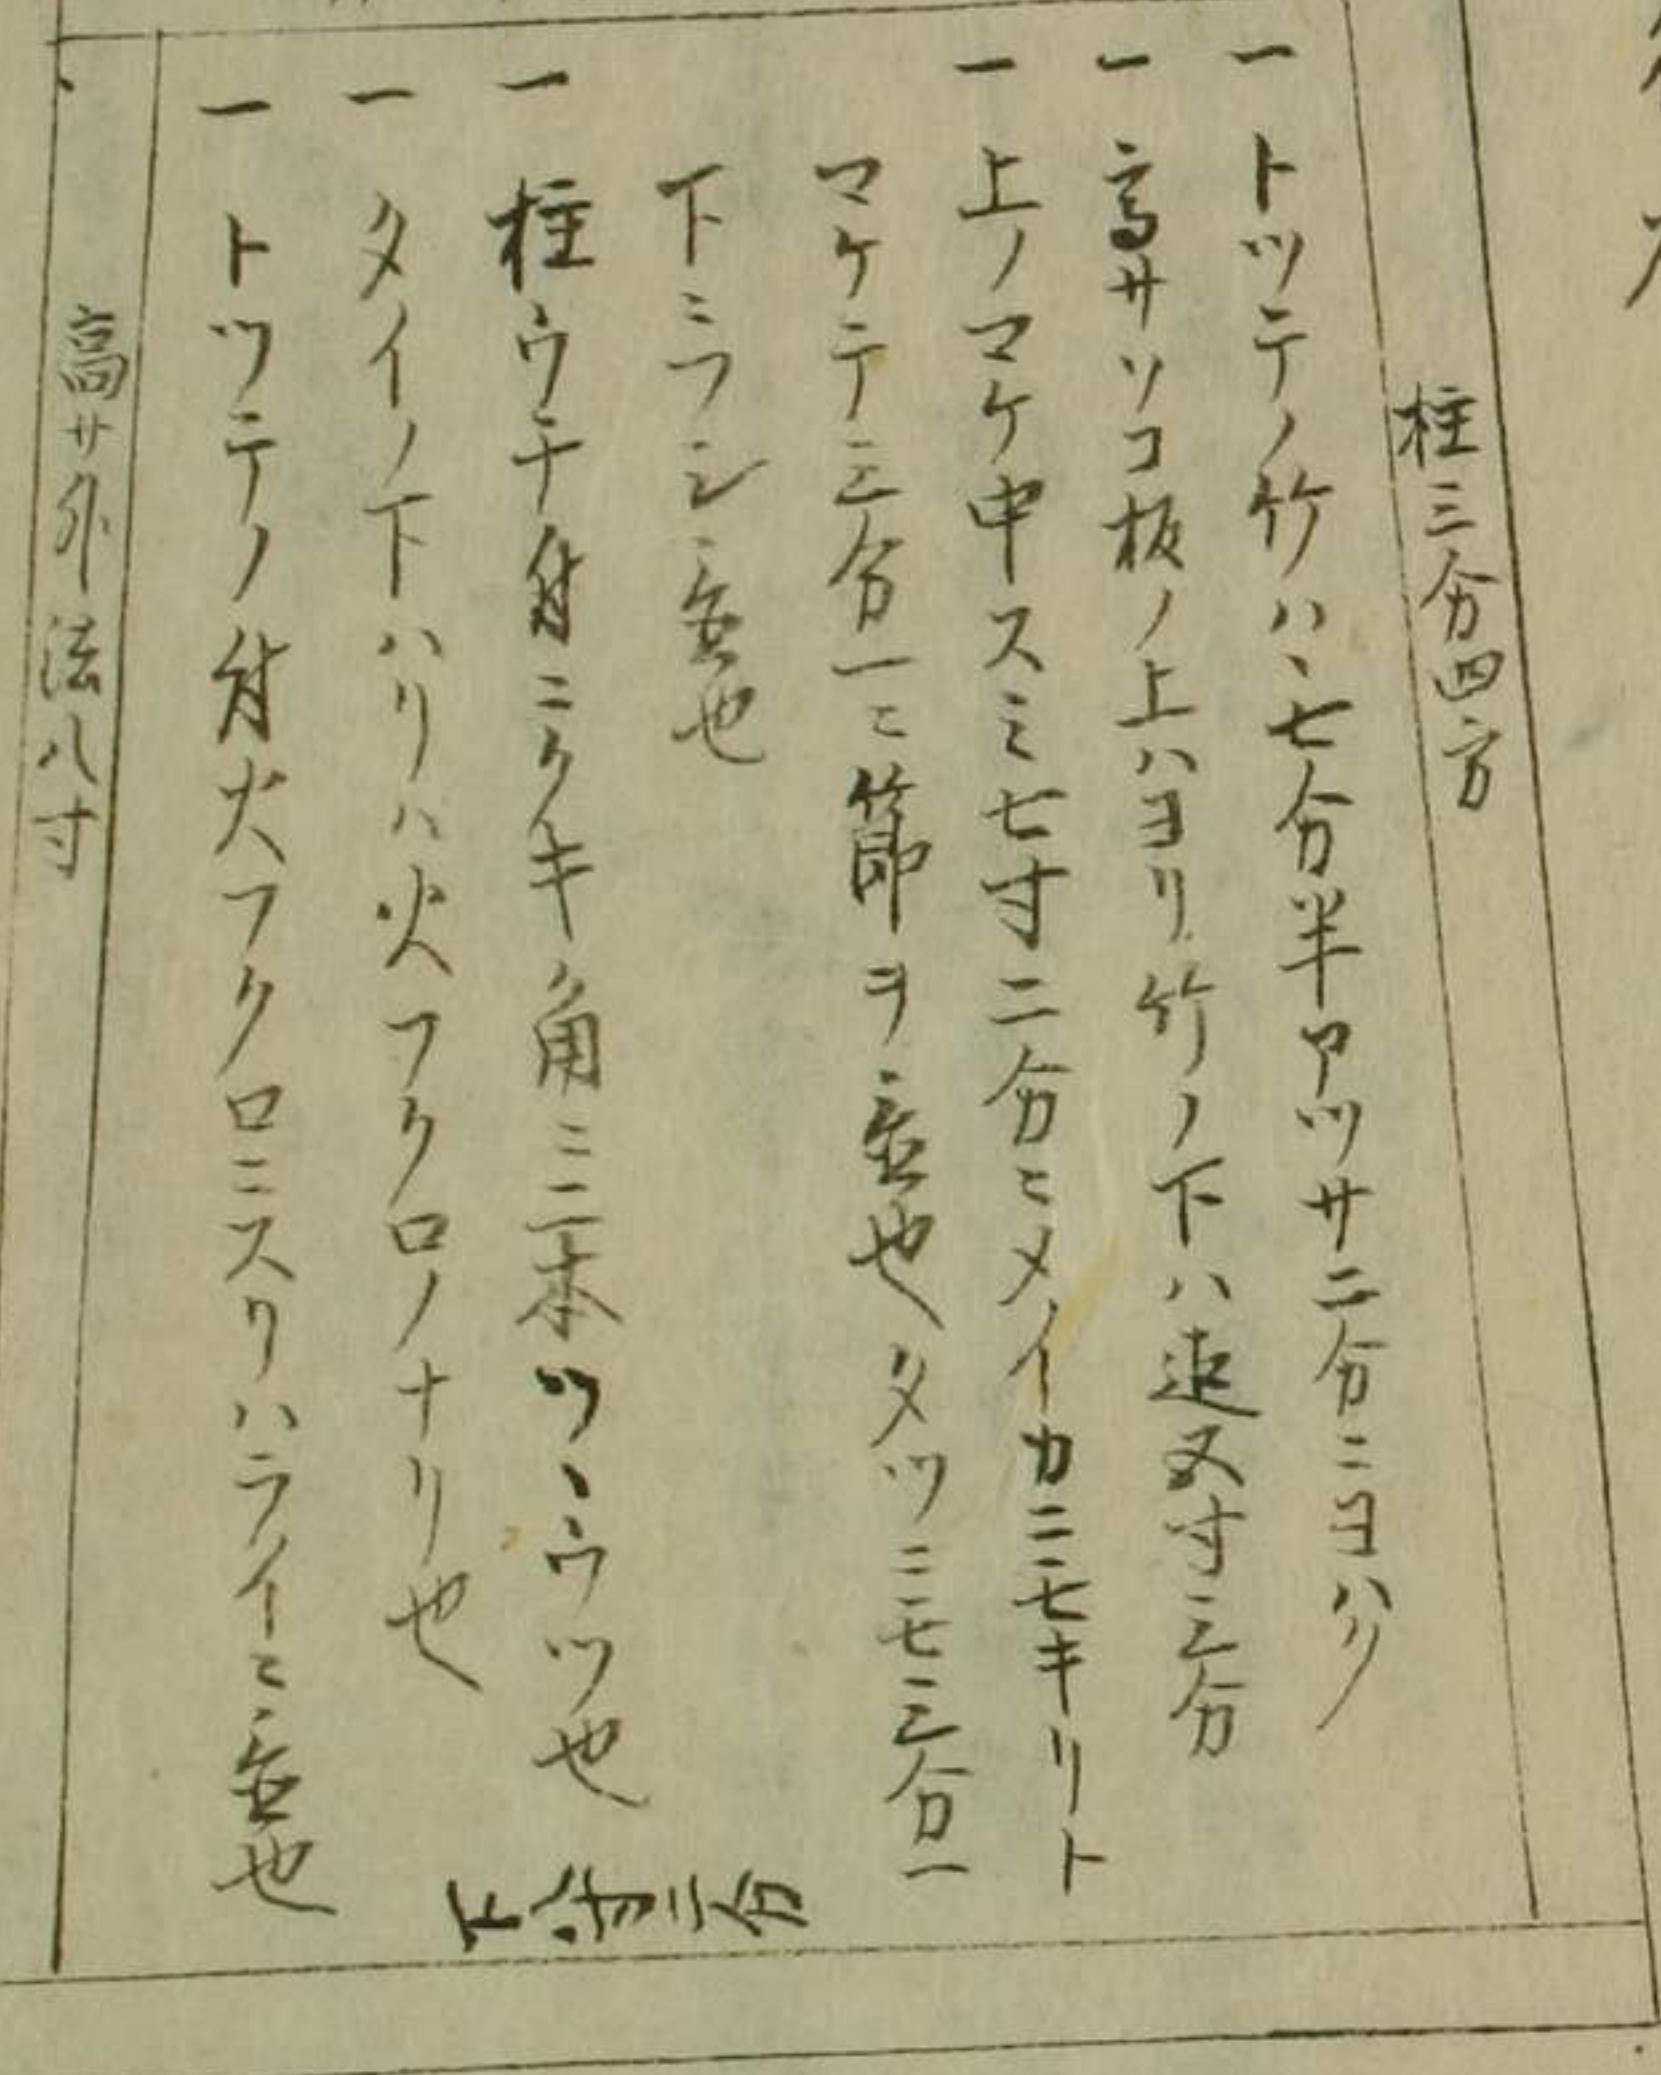 柱三分四方
一 トツテノ竹ハヽ七分半アツサ二分ニヨハリ
一 高サソコ板ノ上ハヨリ竹ノ下ハ迄又寸三分
一 上ノマケ中スミ七寸二分ニメイカニモキリト
マケテ三分一ニ節ヲ置也タツニモ三分一
下ニフシ置也
一 柱ウチ付ニクキ角ニ二本ツヽウツ也
一 タイノ下ハリハ火フクロノナリ也
一 トツテノ付火フクロニスクハライニ置也
下 寸三分
高サ外法八寸